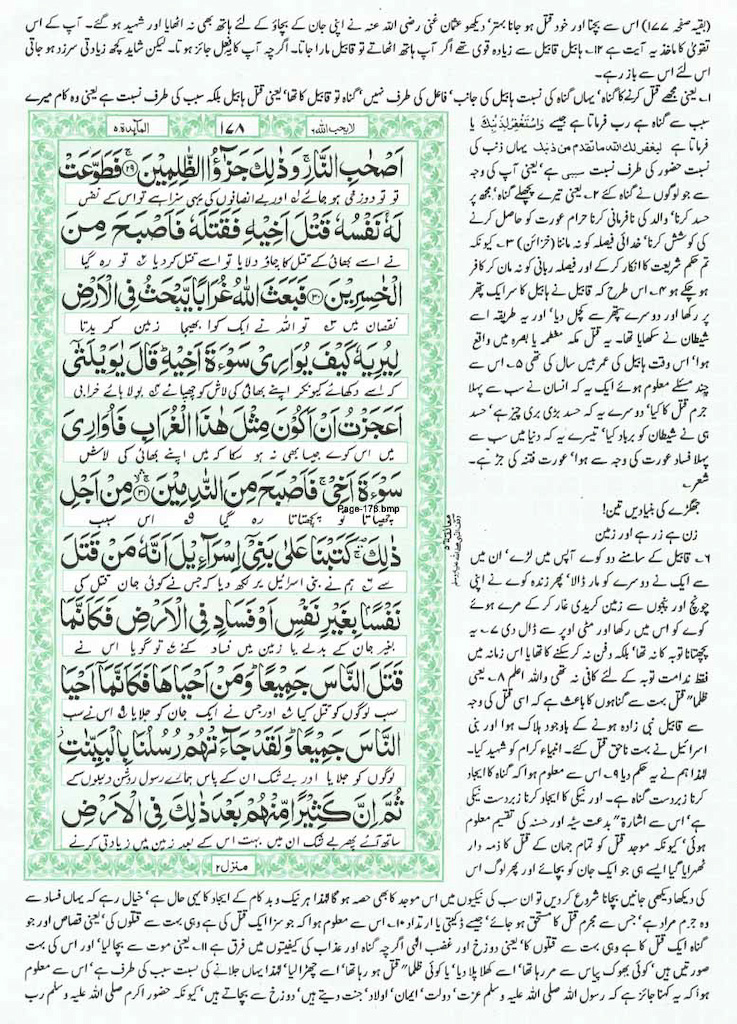 (بقیہ صفحہ ۱۷۷) اس سے بچنا اور خود قتل ہو جانا بہتر' دیکھو عثمان غنی رضی اللہ عنہ نے اپنی جان کے بچاؤ کے لئے ہاتھ بھی نہ اٹھایا اور شہید ہو گئے۔ آپ کے اس
تقویٰ کا ماخذ یہ آیت ہے ۱۲۔ ہابیل قابیل سے زیادہ قوی تھے اگر آپ ہاتھ اٹھاتے تو قابیل مارا جاتا۔ اگرچہ آپ کا یہ فعل جائز ہوتا۔ لیکن شاید کچھ زیادتی سرزد ہو جاتی
اس لئے اس سے باز رہے۔
۱۔ یعنی مجھے قتل کرنے کا گناہ' یہاں گناہ کی نسبت ہابیل کی جانب' فاعل کی طرف نہیں' گناہ تو قابیل کا تھا' یعنی قتل ہابیل بلکہ سبب کی طرف نسبت ہے یعنی وہ کام میرے
سبب سے گناہ ہے رب فرماتا ہے جیسے وَاسْتَغْفِرْ لِذَنْۢبِكَ یا
فرماتا ہے لیغفر لك الله ما تقدم من ذنبك یہاں ذنب کی
نسبت حضور کی طرف نسبت سببی ہے' یعنی آپ کی وجہ
سے جو لوگوں نے گناہ کئے ۲۔ یعنی تیرے پچھلے گناہ' مجھ پر
حسد کرنا' والد کی نافرمانی کرنا حرام عورت کو حاصل کرنے
کی کوشش کرنا' خدائی فیصلہ کو نہ ماننا (خزائن) ۳۔ کیونکہ
تم حکم شریعت کا انکار کر کے اور فیصلہ ربانی کو نہ مان کر کافر
ہو چکے ہو ۴۔ اس طرح کہ قابیل نے ہابیل کا سر ایک پتھر
پر رکھا اور دوسرے پتھر سے کچل دیا' اور یہ طریقہ اسے
شیطان نے سکھایا تھا۔ یہ قتل مکہ معظمہ یا بصرہ میں واقع
ہوا' اس وقت ہابیل کی عمر بیس سال کی تھی ۵۔ اس سے
چند مسئلے معلوم ہوئے ایک یہ کہ انسان نے سب سے پہلا
جرم قتل کا کیا' دوسرے یہ کہ حسد بڑی بری چیز ہے' حسد
ہی نے شیطان کو برباد کیا' تیسرے یہ کہ دنیا میں سب سے
پہلا فساد عورت کی وجہ سے ہوا' عورت فتنہ کی جڑ ہے۔
شعر۔
جھگڑے کی بنیادیں تین!
زن ہے زر ہے اور زمین
۶۔ قابیل کے سامنے دو کوے آپس میں لڑے' ان میں
سے ایک نے دوسرے کو مار ڈالا' پھر زندہ کوے نے اپنی
چونچ اور پنجوں سے زمین کریدی غار کر کے مرے ہوئے
کوے کو اس میں رکھا اور مٹی اوپر سے ڈال دی ۷۔ یہ
پچھتانا توبہ کا نہ تھا' بلکہ دفن نہ کر سکنے کا تھا یا اس زمانہ میں
فقط ندامت توبہ کے لئے کافی نہ تھی واللہ اعلم ۸۔ یعنی
ظلما" قتل بہت سے گناہوں کا باعث ہے کہ اسی قتل کی وجہ
سے قابیل نبی زادہ ہونے کے باوجود ہلاک ہوا اور بنی
اسرائیل نے بہت ناحق قتل کئے۔ انبیاء کرام کو شہید کیا۔
لہذا ہم نے یہ حکم دیا ۹۔ اس سے معلوم ہوا کہ گناہ کا ایجاد
کرنا زبردست گناہ ہے۔ اور نیکی کا ایجاد کرنا زبردست نیکی
ہے' اس سے اشارۃ" بدعت سیئہ اور حسنہ کی تقسیم معلوم
ہوئی' کیونکہ موجد قتل کو تمام جہان کے قتل کا ذمہ دار
ٹھہرایا گیا ایسے ہی جو ایک جان کو بچائے اور پھر لوگ اس
لا یحب اللہ ۶
۱۷۸
المآیدۃ ۵
اَصْحٰبِ النَّارِ ۚ وَ ذٰلِكَ جَزٰٓؤُا الظّٰلِمِيْنَ ﴿۲۹﴾ فَطَوَّعَتْ
تو تو دوزخی ہو جائے اور بے انصافوں کی یہی سزا ہے تو اس کے نفس
لَهٗ نَفْسُهٗ قَتْلَ اَخِيْهِ فَقَتَلَهٗ فَاَصْبَحَ مِنَ
نے اسے بھائی کے قتل کا چاؤ دلایا تو اسے قتل کر دیا تو رہ گیا
الْخٰسِرِيْنَ ﴿۳۰﴾ فَبَعَثَ اللّٰهُ غُرَابًا يَّبْحَثُ فِي الْاَرْضِ
نقصان میں تو اللہ نے ایک کوا بھیجا زمین کریدتا
لِيُرِيَهٗ كَيْفَ يُوَارِيْ سَوْءَةَ اَخِيْهِ ؕ قَالَ يٰوَيْلَتٰٓى
کہ اسے دکھائے کیونکر اپنے بھائی کی لاش کو چھپائے بولا ہائے خرابی
اَعَجَزْتُ اَنْ اَكُوْنَ مِثْلَ هٰذَا الْغُرَابِ فَاُوَارِيَ
میں اس کوے جیسا بھی نہ ہو سکا کہ میں اپنے بھائی کی لاش
سَوْءَةَ اَخِيْ ۚ فَاَصْبَحَ مِنَ النّٰدِمِيْنَ ﴿۳۱﴾ مِنْ اَجْلِ
Page-178.bmp
چھپاتا تو پچھتاتا رہ گیا اس سبب
ذٰلِكَ ۛۚ كَتَبْنَا عَلٰى بَنِيْٓ اِسْرَآءِيْلَ اَنَّهٗ مَنْ قَتَلَ
سے ہم نے بنی اسرائیل پر لکھ دیا کہ جس نے کوئی جان قتل کی
نَفْسًۢا بِغَيْرِ نَفْسٍ اَوْ فَسَادٍ فِي الْاَرْضِ فَكَاَنَّمَا
بغیر جان کے بدلے یا زمین میں فساد کئے تو گویا اس نے
قَتَلَ النَّاسَ جَمِيْعًا ؕ وَ مَنْ اَحْيَاهَا فَكَاَنَّمَآ اَحْيَا
سب لوگوں کو قتل کیا اور جس نے ایک جان کو جلایا اس نے سب
النَّاسَ جَمِيْعًا ؕ وَ لَقَدْ جَآءَتْهُمْ رُسُلُنَا بِالْبَيِّنٰتِ
لوگوں کو جلا یا اور بے شک ان کے پاس ہمارے رسول روشن دلیلوں کے
ثُمَّ اِنَّ كَثِيْرًا مِّنْهُمْ بَعْدَ ذٰلِكَ فِي الْاَرْضِ
ساتھ آئے پھر بے شک ان میں بہت اس کے بعد زمین میں زیادتی کرنے
منزل ۲
کی دیکھا دیکھی جانیں بچانا شروع کر دیں تو ان سب کی نیکیوں میں اس موجد کا بھی حصہ ہو گا لہذا ہر نیک و بد کام کے ایجاد کا یہی حال ہے' خیال رہے کہ یہاں فساد سے
وہ جرم مراد ہے' جس سے مجرم قتل کا مستحق ہو جائے' جیسے ڈکیتی یا ارتداد ۱۰۔ اس سے معلوم ہوا کہ جو سزا ایک قتل کی ہے وہی بہت سے قتلوں کی' یعنی قصاص اور جو
گناہ ایک قتل کا ہے وہی بہت سے قتلوں کا' یعنی دوزخ اور غضب الٰہی اگرچہ گناہ اور عذاب کی کیفیتوں میں فرق ہے ۱۱۔ یعنی موت سے بچا لیا' اور اس کی بہت
صورتیں ہیں' کوئی بھوک پیاس سے مر رہا تھا' اسے کھلا پلا دیا' یا کوئی ظلما" قتل ہو رہا تھا' اسے چھڑا لیا' لہذا یہاں جلانے کی نسبت سبب کی طرف ہے' اس سے معلوم
ہوا کہ یہ کہنا جائز ہے کہ رسول اللہ صلی اللہ علیہ وسلم عزت' دولت' ایمان' اولاد' جنت دیتے ہیں' دوزخ سے بچاتے ہیں' کیونکہ حضور اکرم صلی اللہ علیہ وسلم رب